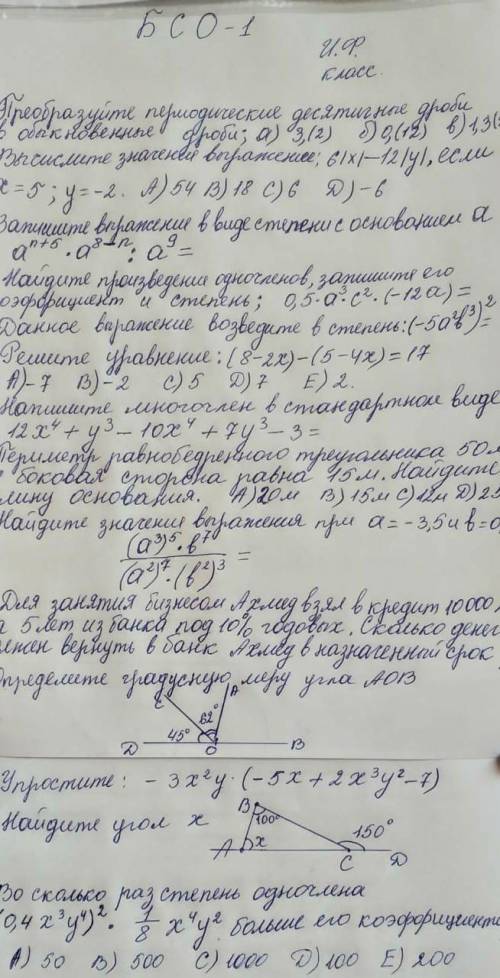 БСО-1
И.Ф.
класс.
Преобразуйте периодические десятичные дроби
в обыкновенные дроби; а) 3,(2) б) 0,(12) в) 1,3(
Вычислите значение выражение; 6|x|-12|y|, если
x=5; y=-2. А) 54 В) 18 С) 6 D) -6
Запишите выражение в виде степени с основанием a
a^(n+5) · a^(8-n) : a^9 =
Найдите произведение одночленов, запишите его
коэффициент и степень; 0,5·a^3·c^2·(-12a)=
Данное выражение возведите в степень: (-5a^2b^3)^2=
Решите уравнение: (8-2x)-(5-4x)=17
А) -7 В) -2 С) 5 D) 7 Е) 2.
Напишите многочлен в стандартном виде
12x^4+y^3-10x^4+7y^3-3=
Периметр равнобедренного треугольника 50м
боковая сторона равна 15м. Найдите
длину основания. А) 20м В) 15м С) 12м D) 25
Найдите значения выражения при a=-3,5 и b=0,
(a^3)^5·b^7
=
(a^2)^7·(b^2)^3
Для занятия бизнесом Ахмед взял в кредит 10000
на 5 лет из банка под 10% годовых. Сколько денег
должен вернуть в банк Ахмед в назначенный срок
Определите градусную меру угла АОВ
E
A
62°
45°
D
O
B
Упростите: -3x^2y·(-5x+2x^3y^2-7)
Найдите угол x
B
100°
150°
A
x
C
D
Во сколько раз степень одночлена
(0,4x^3y^4)^2 · 1/8 x^4y^2 больше его коэффициента
А) 50 В) 500 С) 1000 D) 100 Е) 200